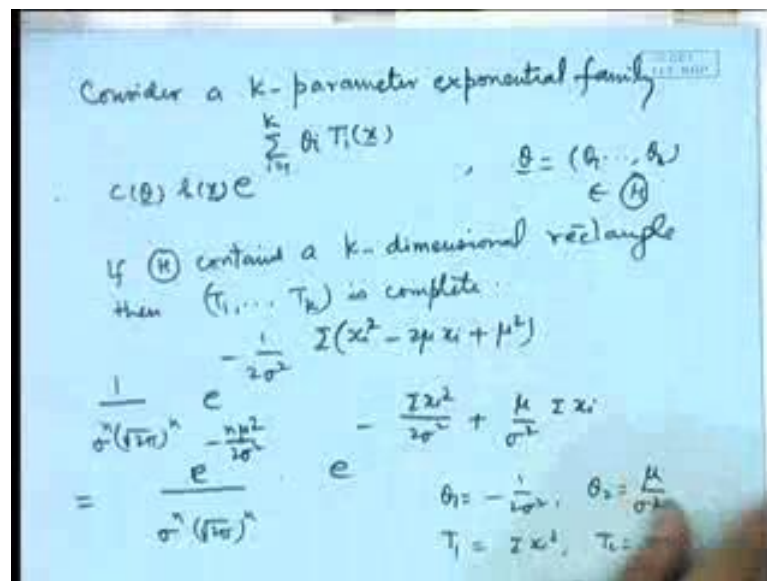 Consider a k-parameter exponential family
c(θ) h(x) e^{∑_{i=1}^{k} θi Ti(x)} , θ = (θ1, ..., θk)
∈ Ⓗ
If Ⓗ contains a k-dimensional rectangle
then (T1, ... Tk) is complete.
1/(σ^n (√2π)^n) e^{-1/(2σ²) Σ(xi² - 2μ xi + μ²)}
= e^{-nμ²/(2σ²)}/(σ^n (√2π)^n) e^{-Σxi²/(2σ²) + μ/σ² Σxi}
θ1 = -1/(2σ²), θ2 = μ/σ²
T1 = Σx², T2 =